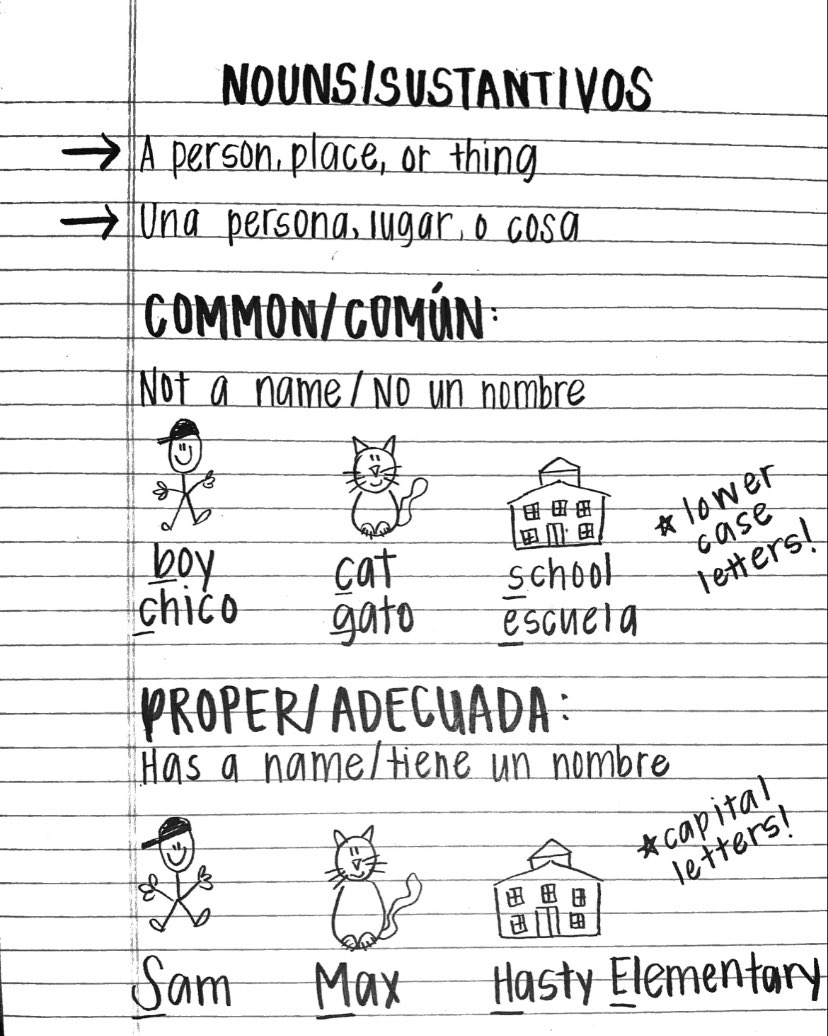 NOUNS/SUSTANTIVOS
→ A person, place, or thing
→ Una persona, lugar, o cosa
COMMON/COMÚN:
Not a name/NO un nombre
boy cat school
chico gato escuela
☆ lower
case
letters!
PROPER/ADECUADA:
Has a name/tiene un nombre
☆ capital
letters!
Sam Max Hasty Elementary